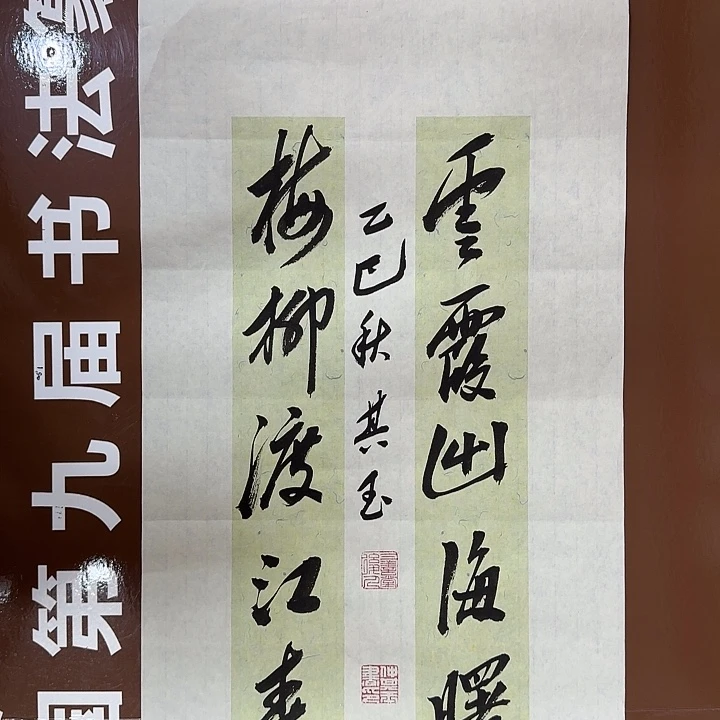 雲霞出海曙
乙巳秋其玉
梅柳渡江春
国第九届书法篆